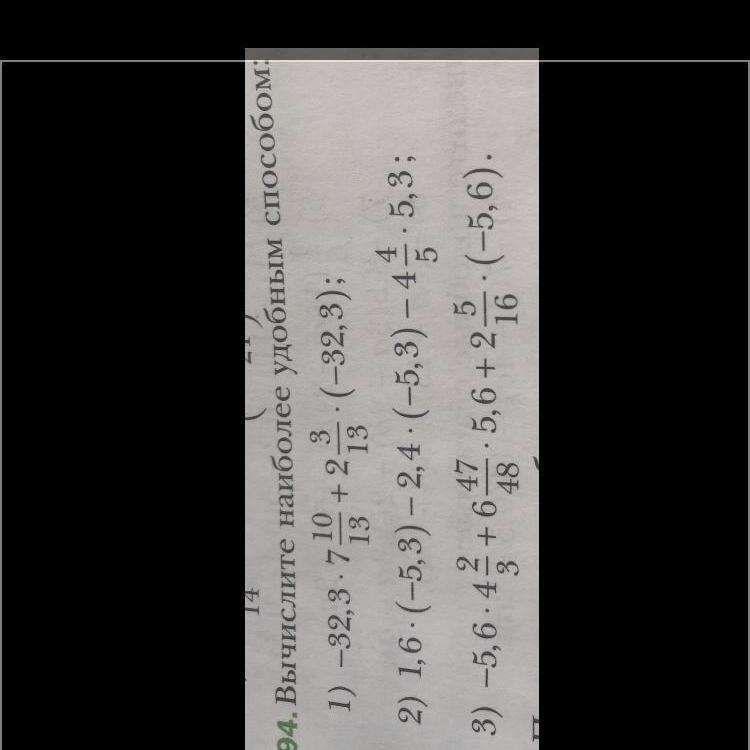 14
94. Вычислите наиболее удобным способом:
1) −32,3 · 7 10/13 + 2 3/13 · (−32,3);
2) 1,6 · (−5,3) − 2,4 · (−5,3) − 4 4/5 · 5,3;
3) −5,6 · 4 2/3 + 6 47/48 · 5,6 + 2 5/16 · (−5,6).